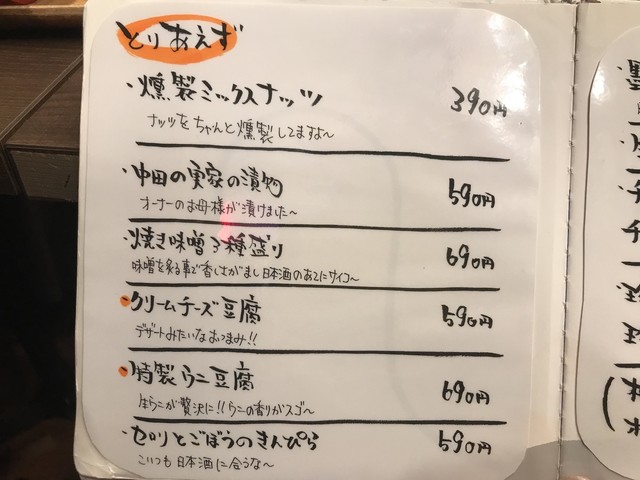 とりあえず
・燻製ミックスナッツ 390円
ナッツをちゃんと燻製してますよ～
・中田の実家の漬物 590円
オーナーのお母様が漬けました～
・焼き味噌3種盛り 690円
味噌を炙る事で香しさがまし日本酒のあてにサイコ～
・クリームチーズ豆腐 590円
デザートみたいなおつまみ!!
・特製うに豆腐 690円
生うにが贅沢に!!うにの香りがスゴ～
・セロリとごぼうのきんぴら 590円
こいつも日本酒に合うな～